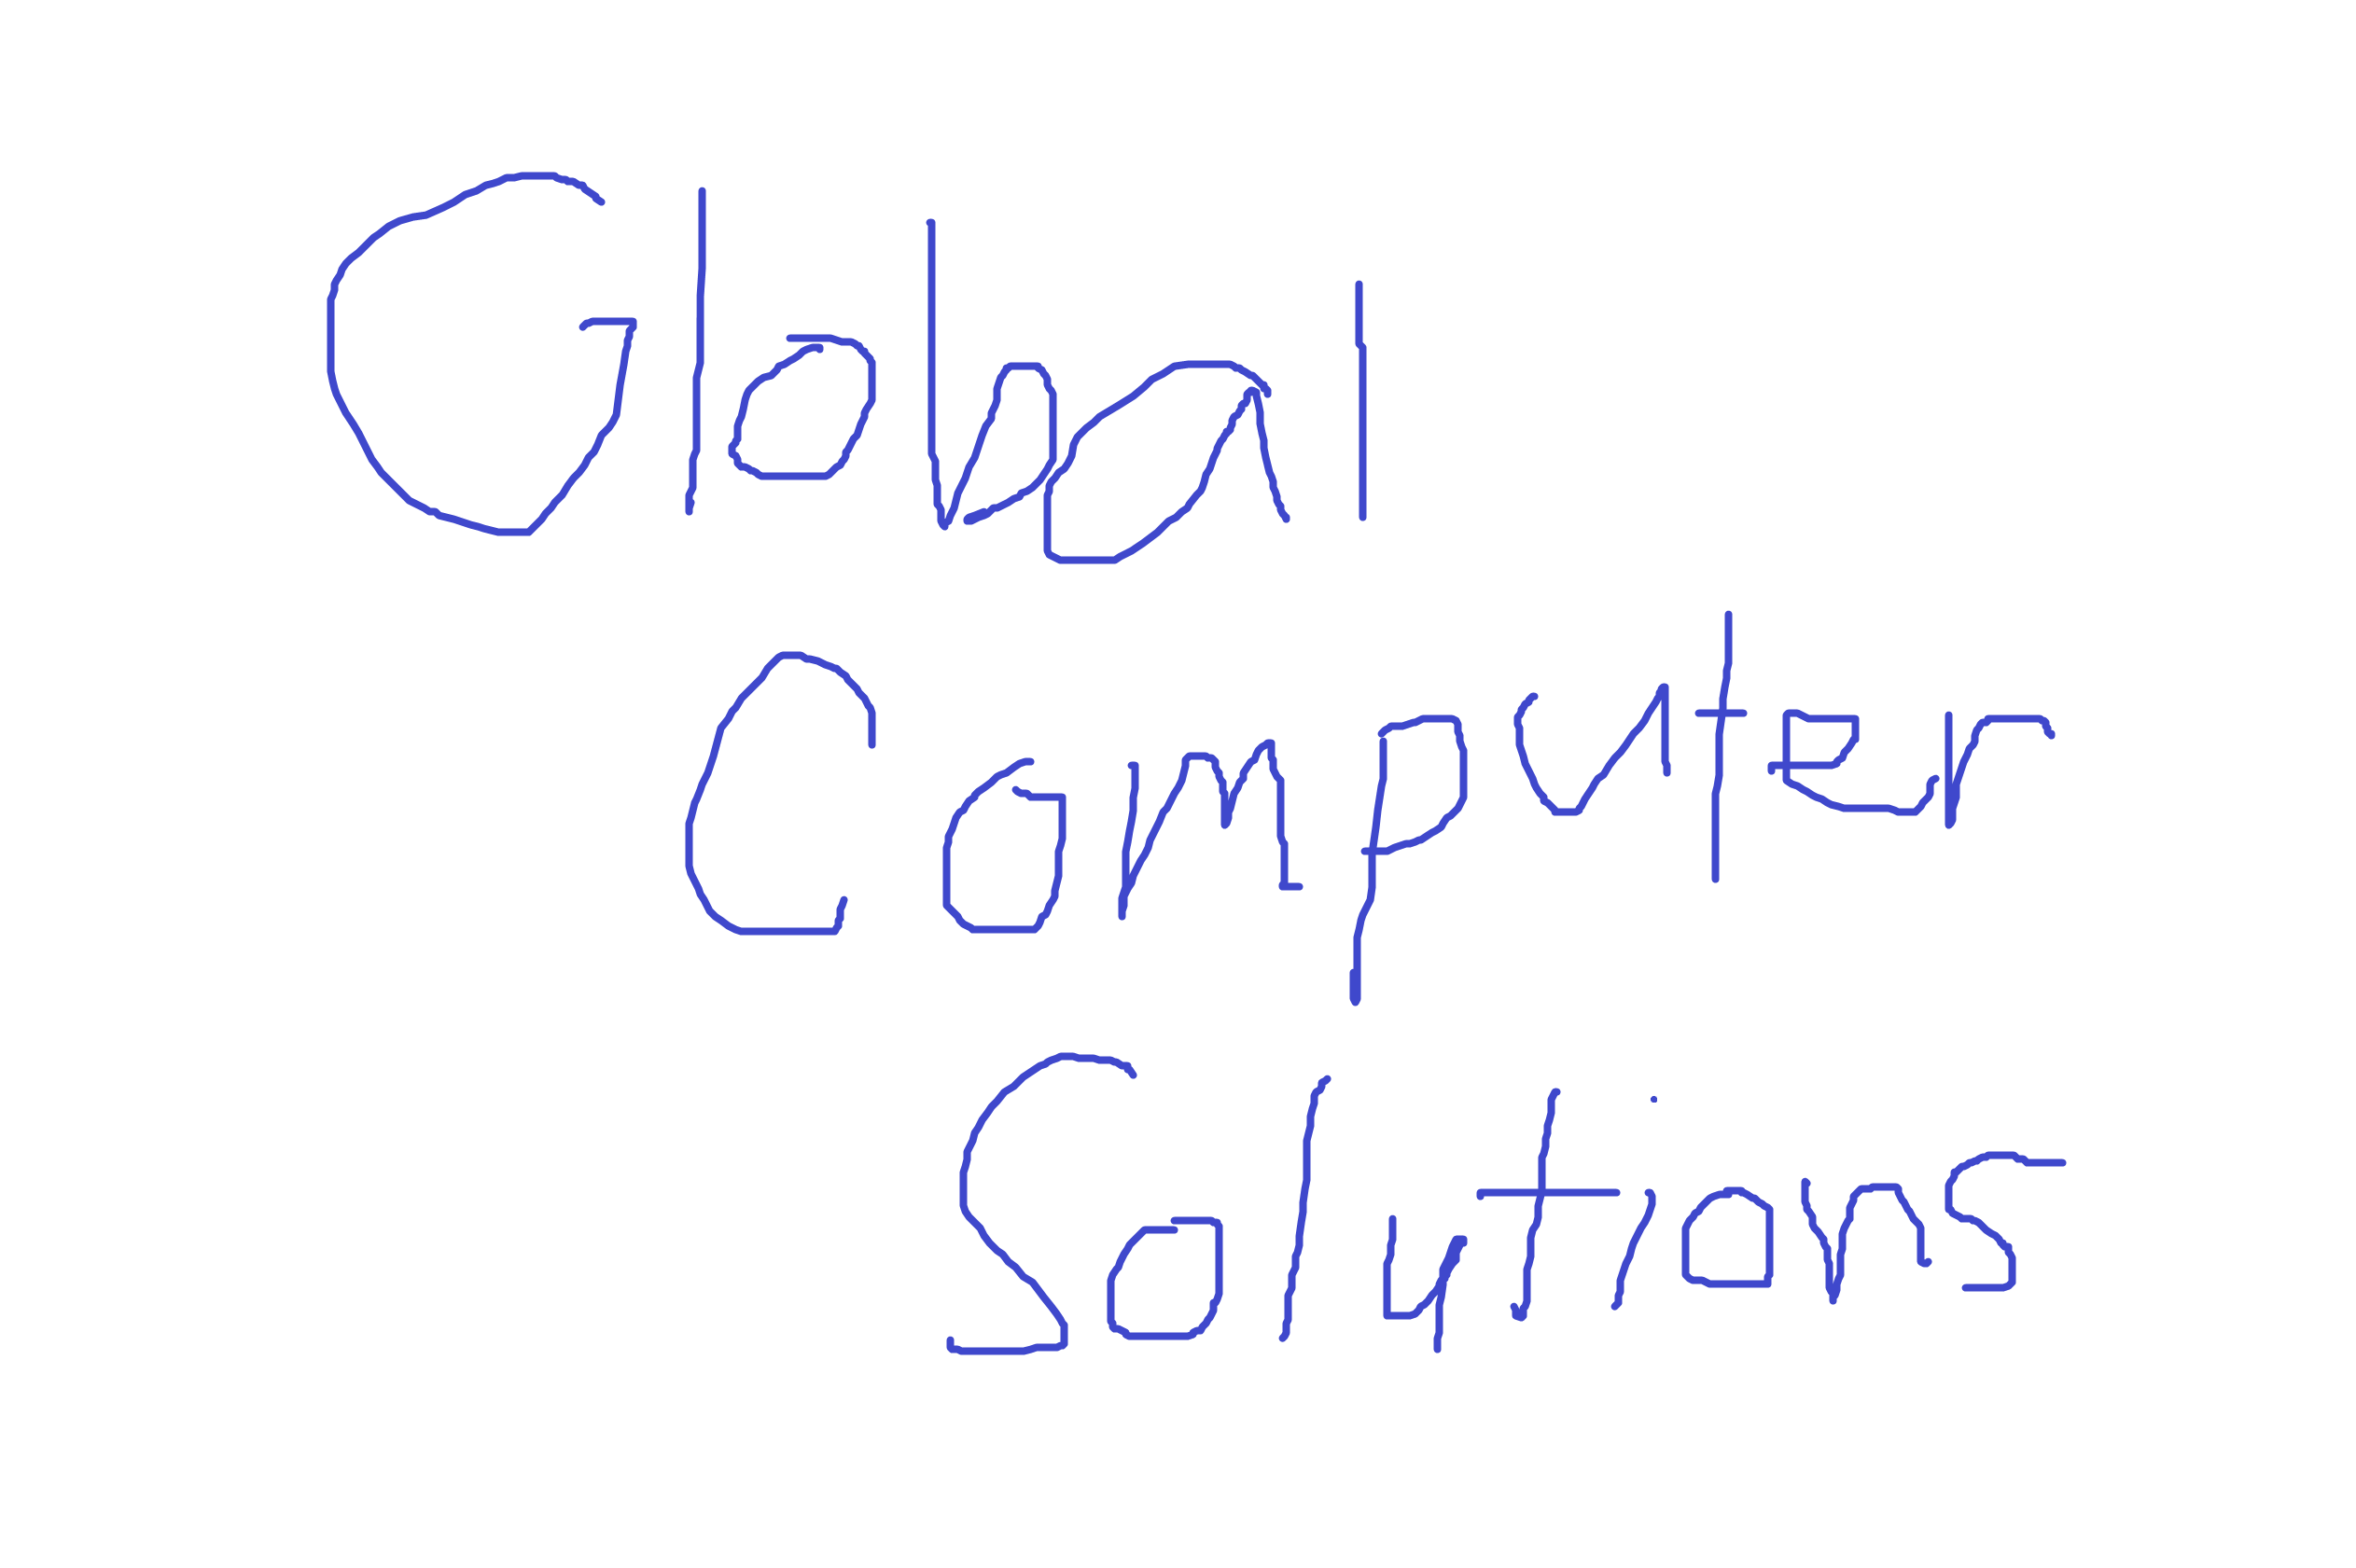 Global
Computer
Solutions